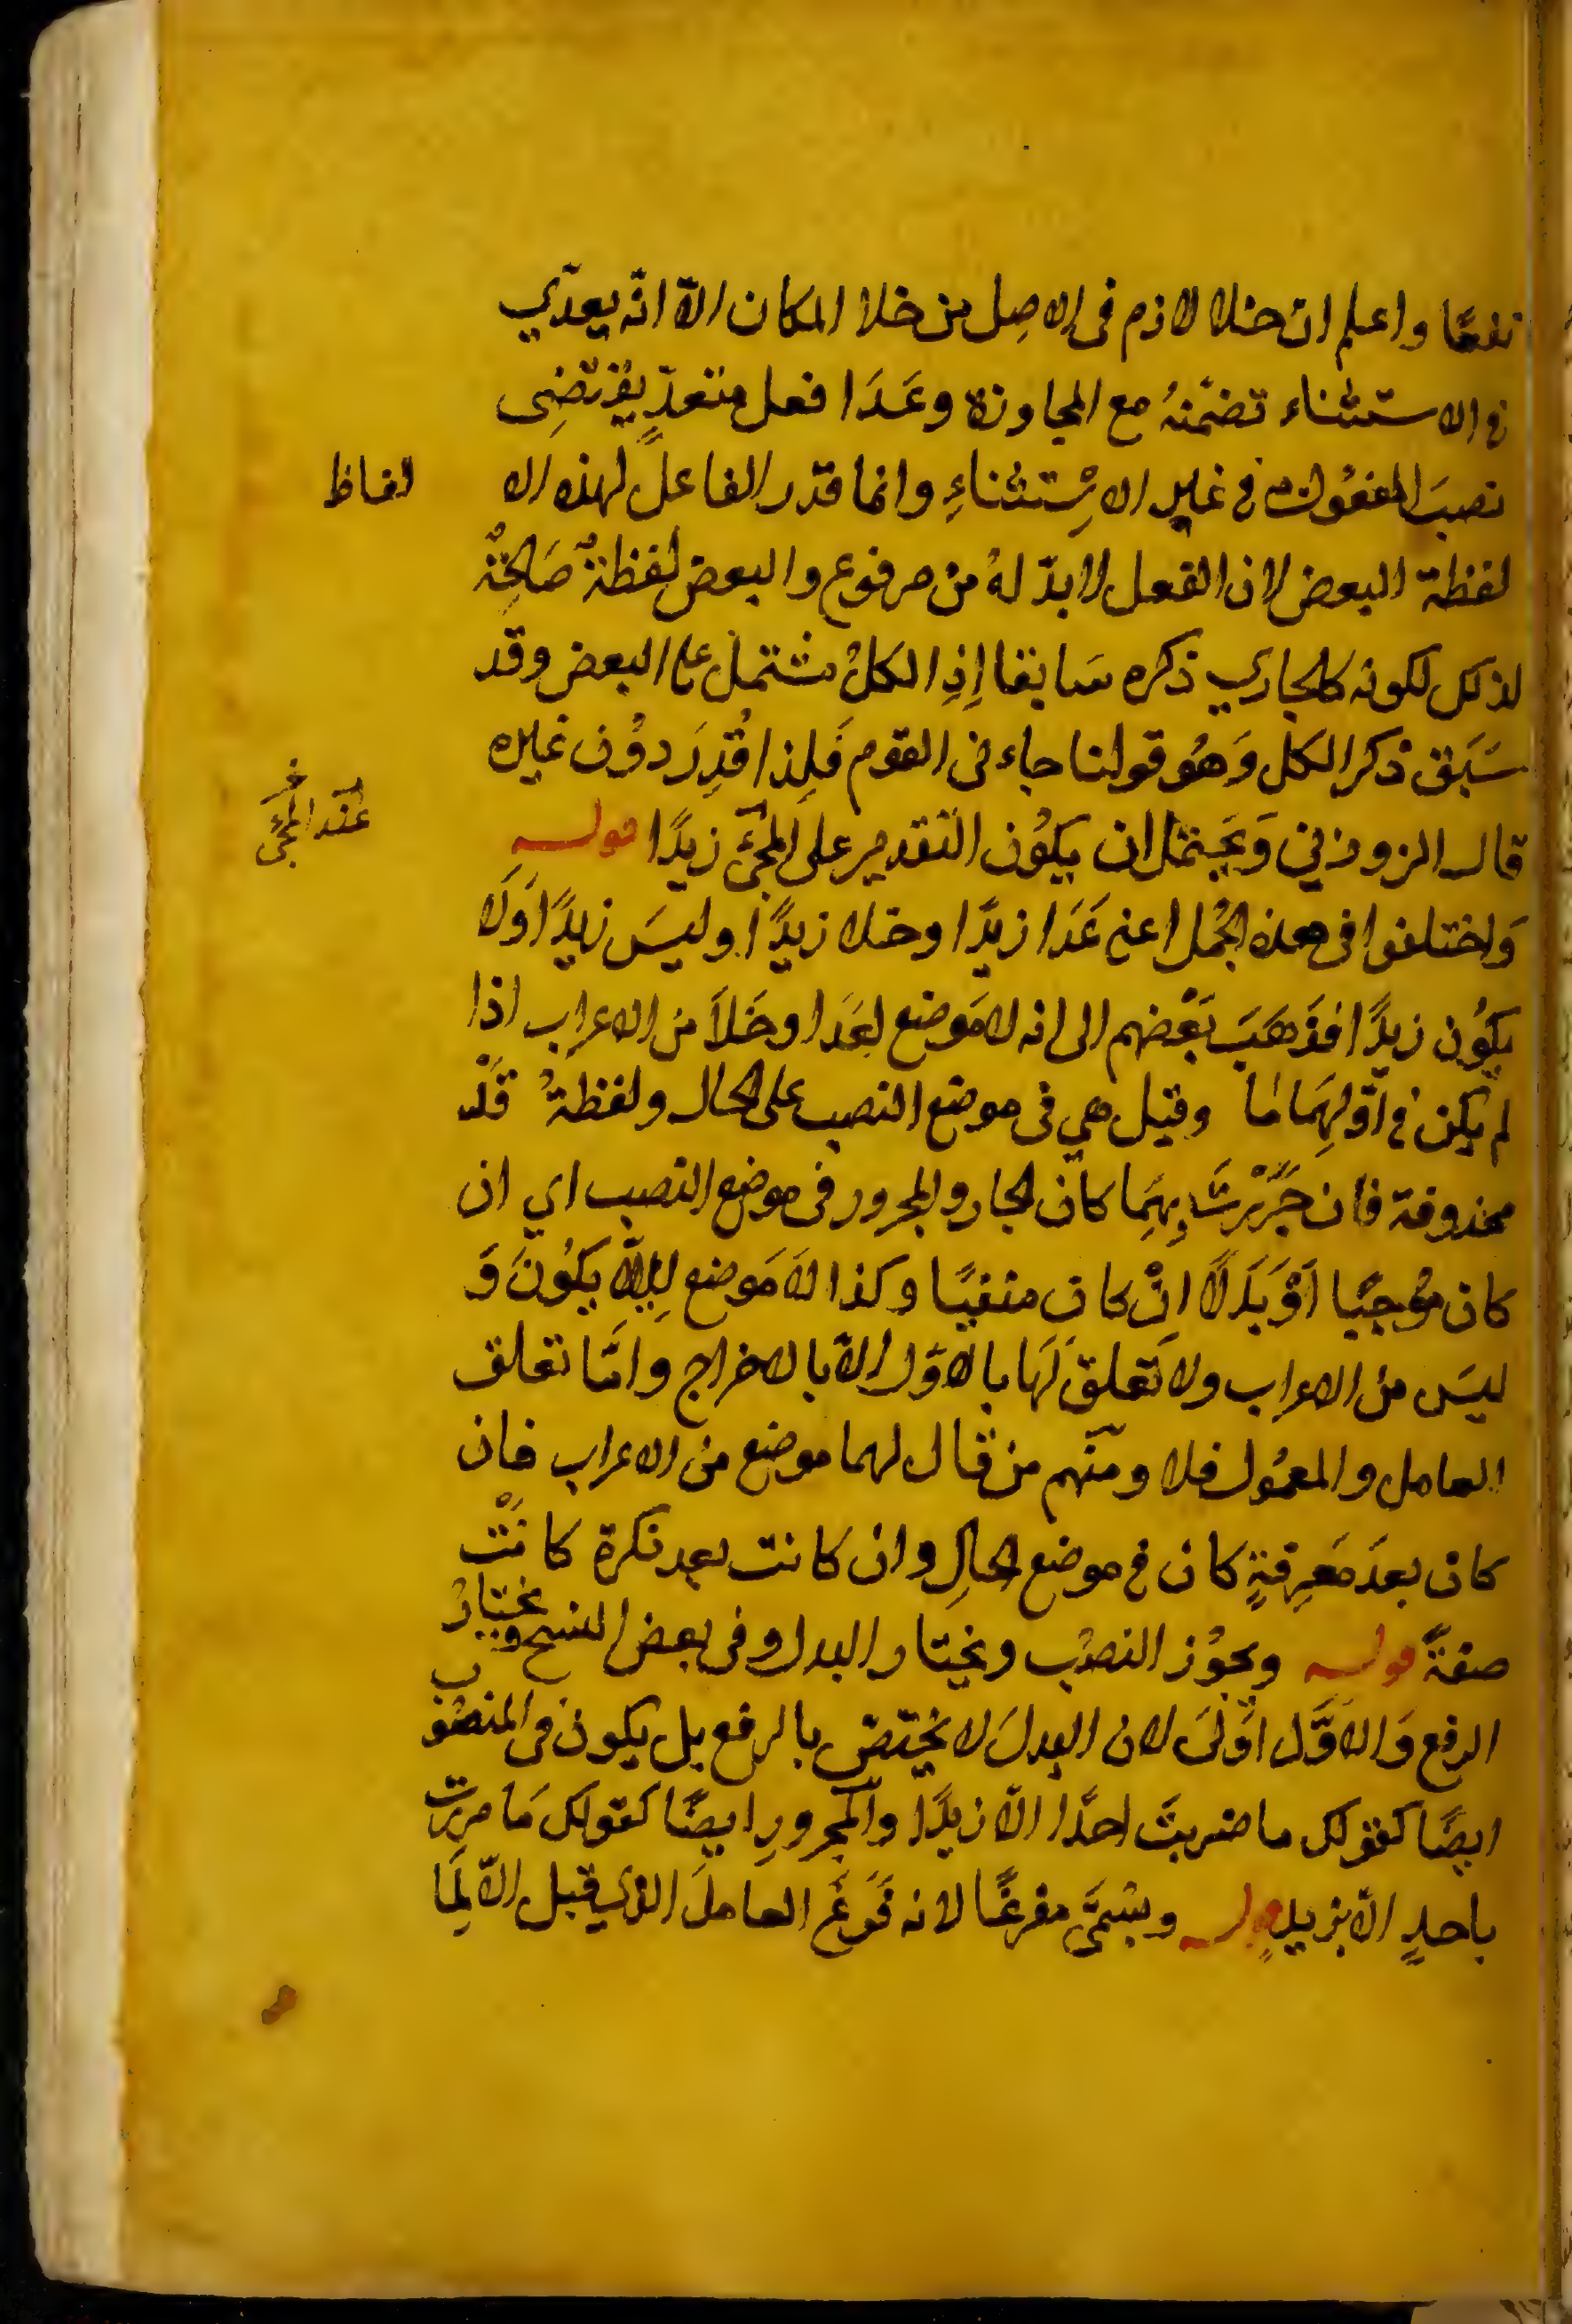 نفعًا واعلم ان خلا لازم فى الاصل من خلا المكان الّا انّه يعدّي
فى الاستثناء تضمّنهُ مع المجاوزة وعَدَا فعل متعدّ يقتضِى
نصبَ المفعُول فى غير الاِسْتثناءِ وانما قدر الفاعل لهذه الا لفاظ
لفظة البعض لان الفعل لا بدّ لهُ من مرفوع والبعض لفظةٌ صَالحةٌ
لذلك لكونه كالجاري ذكره سَابقا اِذِ الكلُّ مشتمل على البعض وقد
سَبَق ذكر الكل وَهُو قولنا جاءنى القوم فَلِذا قُدِرَ دوُن غيره
قال الزوزني وَيَحتمل ان يكوُن التقدير على المجئ زيدًا قوله
عند المجئ
وَاختلفوا فى هذه الجُمل اعنى عَدَا زيدًا وخلا زيدًا وليسَ زيدًا وَلَا
يكوُن زيدًا فذَهَبَ بَعْضهم الى انه لا مَوضع لعَدا وخَلاَ من الاعراب اذا
لم يكن فى اوّلِهمَا مَا وقيل هي فى موضع النصب على الحال ولفظةُ قَدْ
محذوفة فان جَرَرْتَ بِهمَا كان الجار والمجرور فى موضع النصب اي ان
كان مُوجبًا اَوْ بَدَلًا انْ كان منفيًا وكذا لا مَوضع لِلاَ يكوُنَ وَ
ليسَ من الاعراب ولا تَعلقَ لَهَا بالاوّل الّا بالاخراج وامّا تعلق
العامل والمعمُول فلا ومنهم من قال لهما موضع من الاعراب فان
كان بعدَ مَعرِفةٍ كان فى موضع الحالِ وان كانت بعد نكرة كانَتْ
صفةً قوله ويجوُز النصُب ويختار البدل وفى بعض النسخ ويختارُ
الرفع وَالاوَّل اَوْلىَ لان البدلَ لا يختصّ بالرفع بل يكون فى المنصُوب
ايضًا كقولك ما ضربتَ احدًا الّا زيدًا والمجرورِ ايضًا كقولك مَا مررت
باحدٍ الّا بزيدٍ قوله ويسَمَّى مفرغًا لانه فَرَغَ العاملَ الذي قبل الّا لِمَا